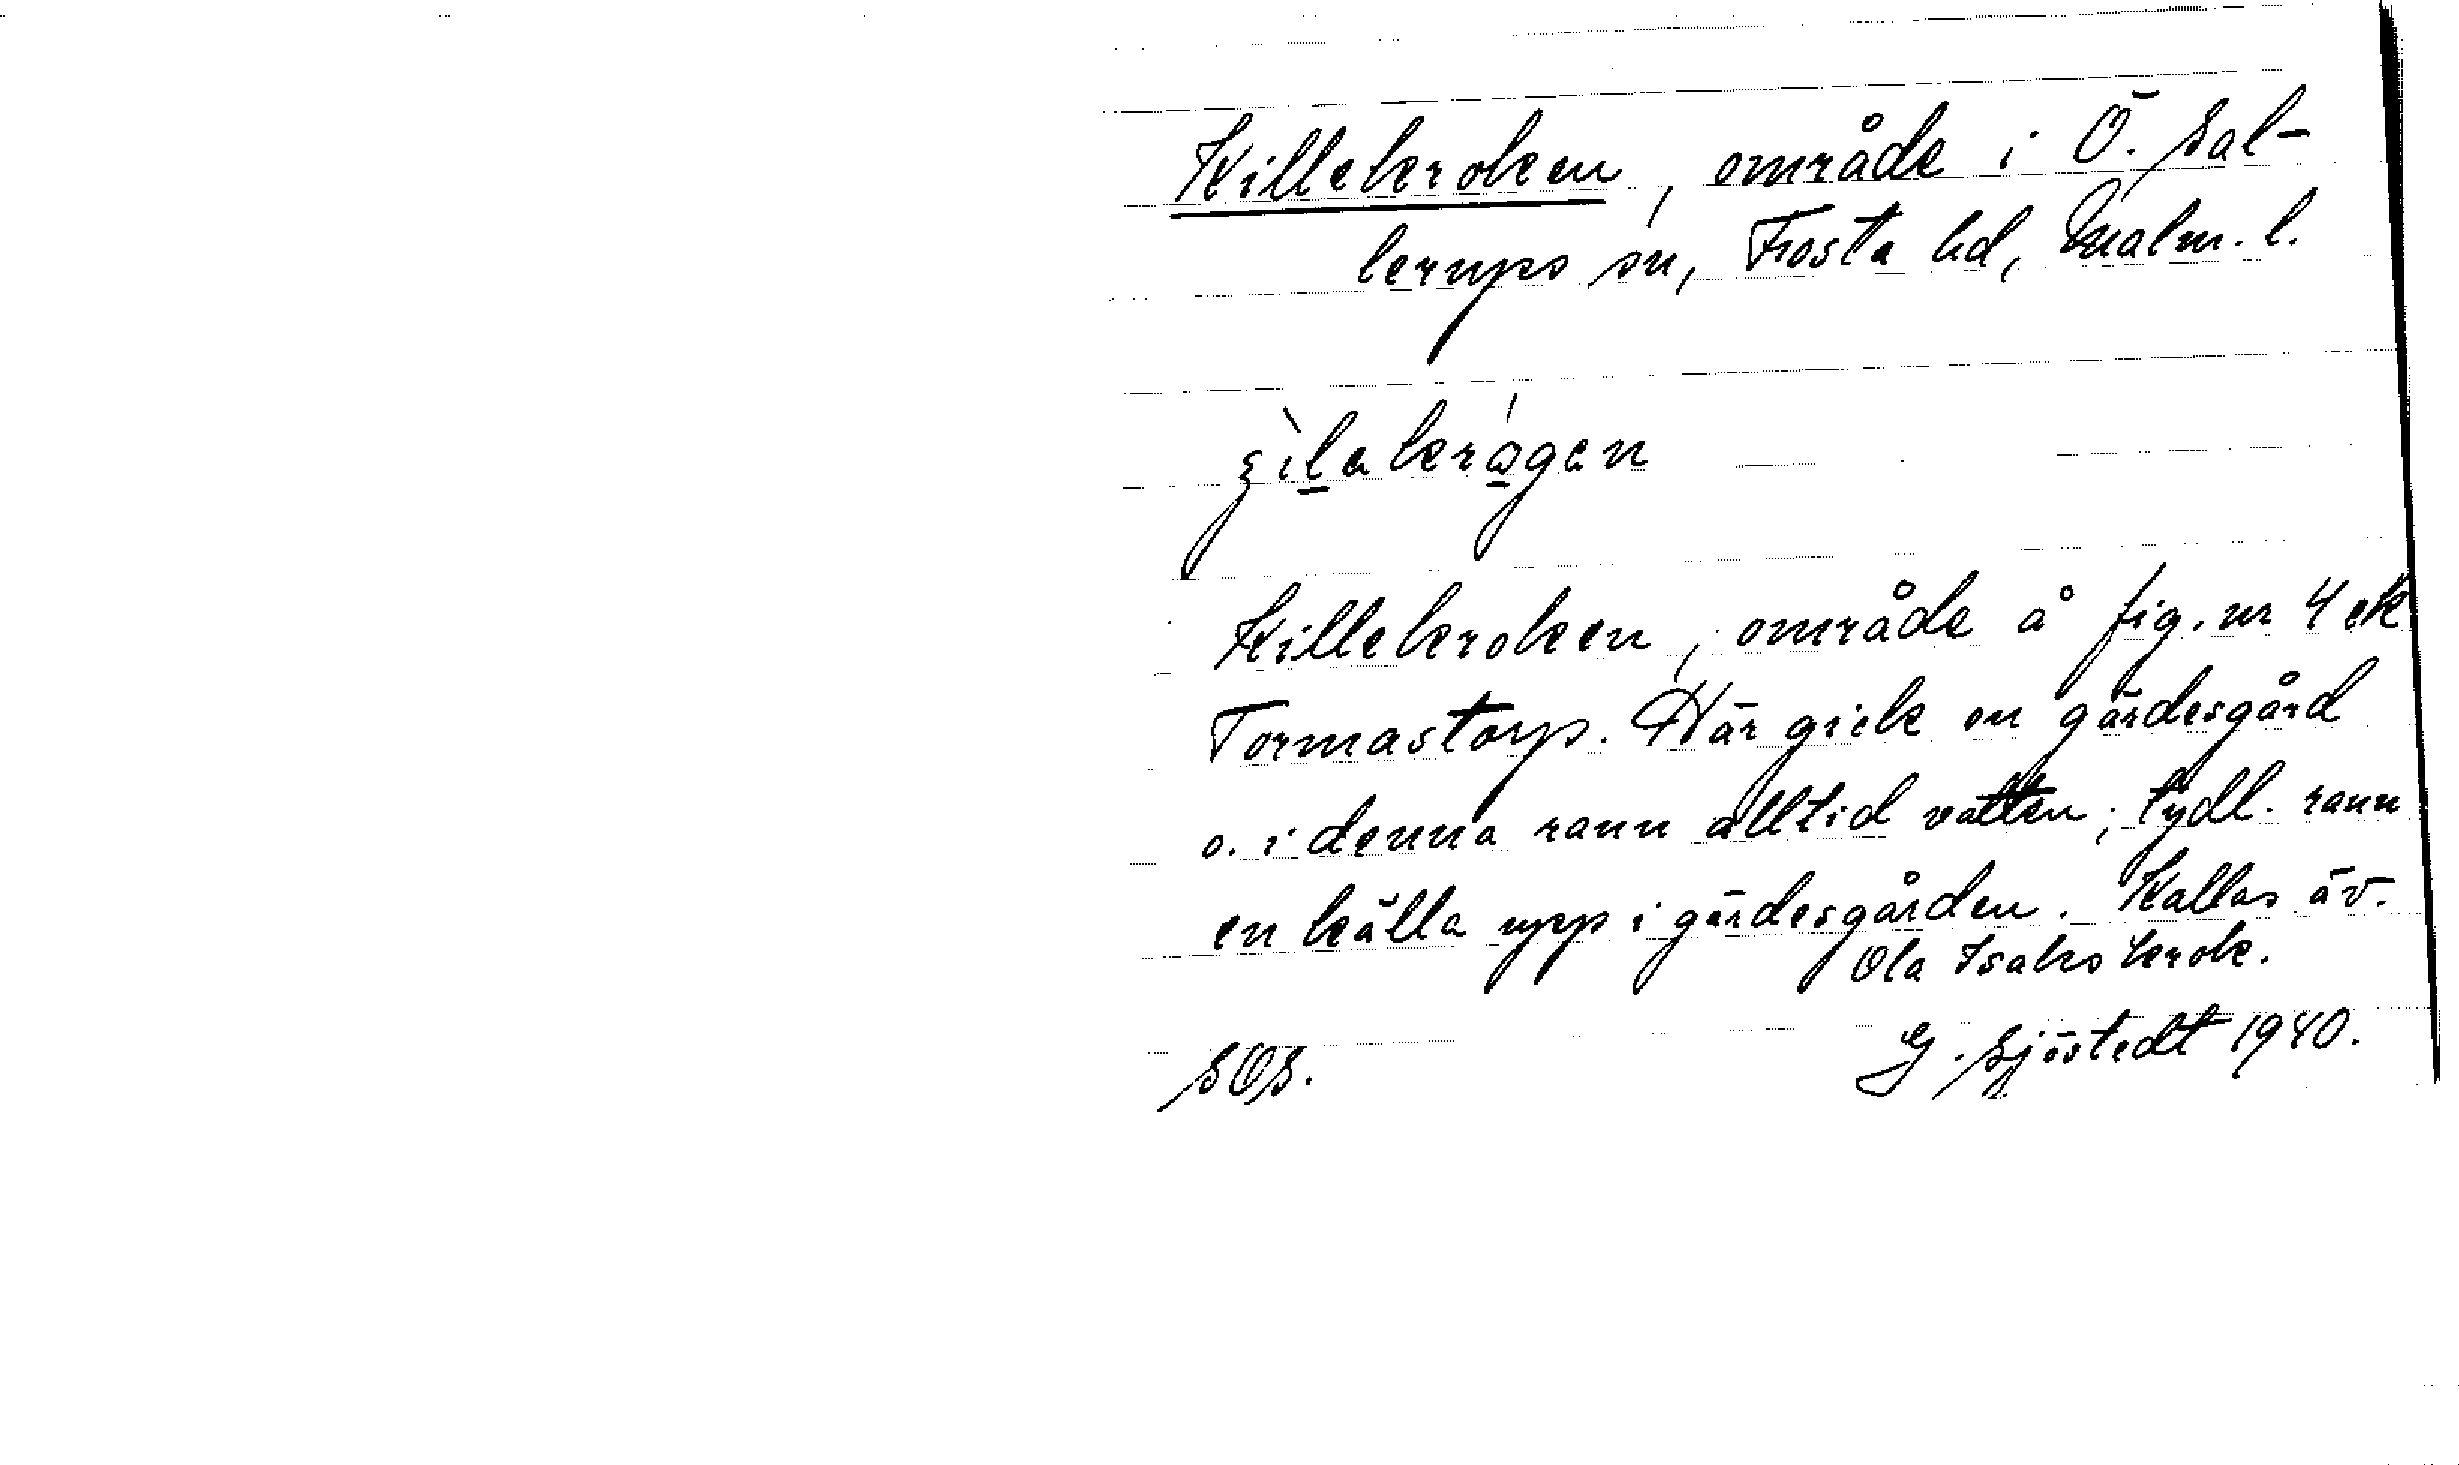 Killekroken, område i Ö. Sal-
lerups sn, Frosta hd, Malm. l.
Killekroken, område å fig. nr 4 ek
Tormastorp. Här gick en gärdesgård
o. i denna rann alltid vatten; tydl. rann
en källa upp i gärdesgården. Kallas äv.
Ola Isaks krok.
SOS. G. Sjöstedt 1940.